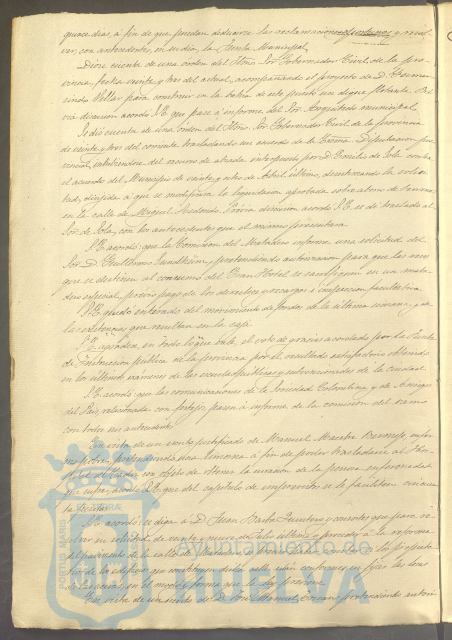 quince dias, á fin de que puedan deducirse las reclamaciones y resol-
ver, con antecedentes, en su dia, la Junta Municipal.
Dióse cuenta de una orden del Iltmo. Sor. Gobernador Civil de la pro-
vincia, fecha veinte y tres del actual, acompañando el proyecto de D.
para construir en la bahia de este puerto un dique flotante. Pré-
via discusion acordó S.E. que pase á informe del Sor. Arquitecto municipal.
Se dió cuenta de una orden del Iltmo. Sor. Gobernador Civil de la provincia
de veinte y tres del corriente trasladando un acuerdo de la Excma. Diputacion pro-
vincial, del recurso de alzada interpuesto por D. de Sola contra
el acuerdo del Municipio de veinte y ocho de Abril último, desestimando la solici-
tud, dirijida á que se modificara la liquidacion aprobada sobre
en la calle de Miguel Redondo. Prévia discusion acordó S.E. se dé traslado al
Sor. de Sola, con los antecedentes que el mismo presentara.
S.E. acordó que la Comision del Matadero informe una solicitud del
Sor. D. Guillermo Sundheim, pretendiendo autorizacion para que las reses
que se destinen al consumo del Gran Hotel se sacrifiquen en un mata-
dero especial, prévio pago de los derechos y recargos é inspeccion facultativa.
S.E. quedó enterado del movimiento de fondos de la última semana, y de
las existencias que resultan en la caja.
S.E. en todo lo que vale, el voto de gracias acordado por la Junta
de Instruccion pública de la provincia por el resultado satisfactorio obtenido
en los últimos exámenes de las escuelas públicas y subvencionadas de la ciudad.
S.E. acordó que las comunicaciones de la Sociedad Colombina, y de Amigos
del Pais, relacionadas con festejos, pasen á informe de la comision del ramo
con todos sus antecedentes.
En vista de un escrito justificado de Manuel Maestre Bermejo, enfer-
mo pobre, pretendiendo una limosna á fin de poder trasladarse al Hos-
pital de con objeto de obtener la curacion de la penosa enfermedad
que sufre, acordó S.E. que del capítulo de imprevistos se le faciliten
pesetas.
S.E. acordó se diga á D. Juan Barba Quintero y consortes que para re-
solver su solicitud de veinte y nueve de Julio último, y proceder á la reforma
del pavimento de la calle de es que los propieta-
rios de los edificios que constituyen dicha calle están conformes en fijar las losas
de las aceras, en el modo y forma que la ley previene.
En vista de un escrito de D. José Manuel pretendiendo autori-
PORTUS MARIS
Ayuntamiento de
HUELVA